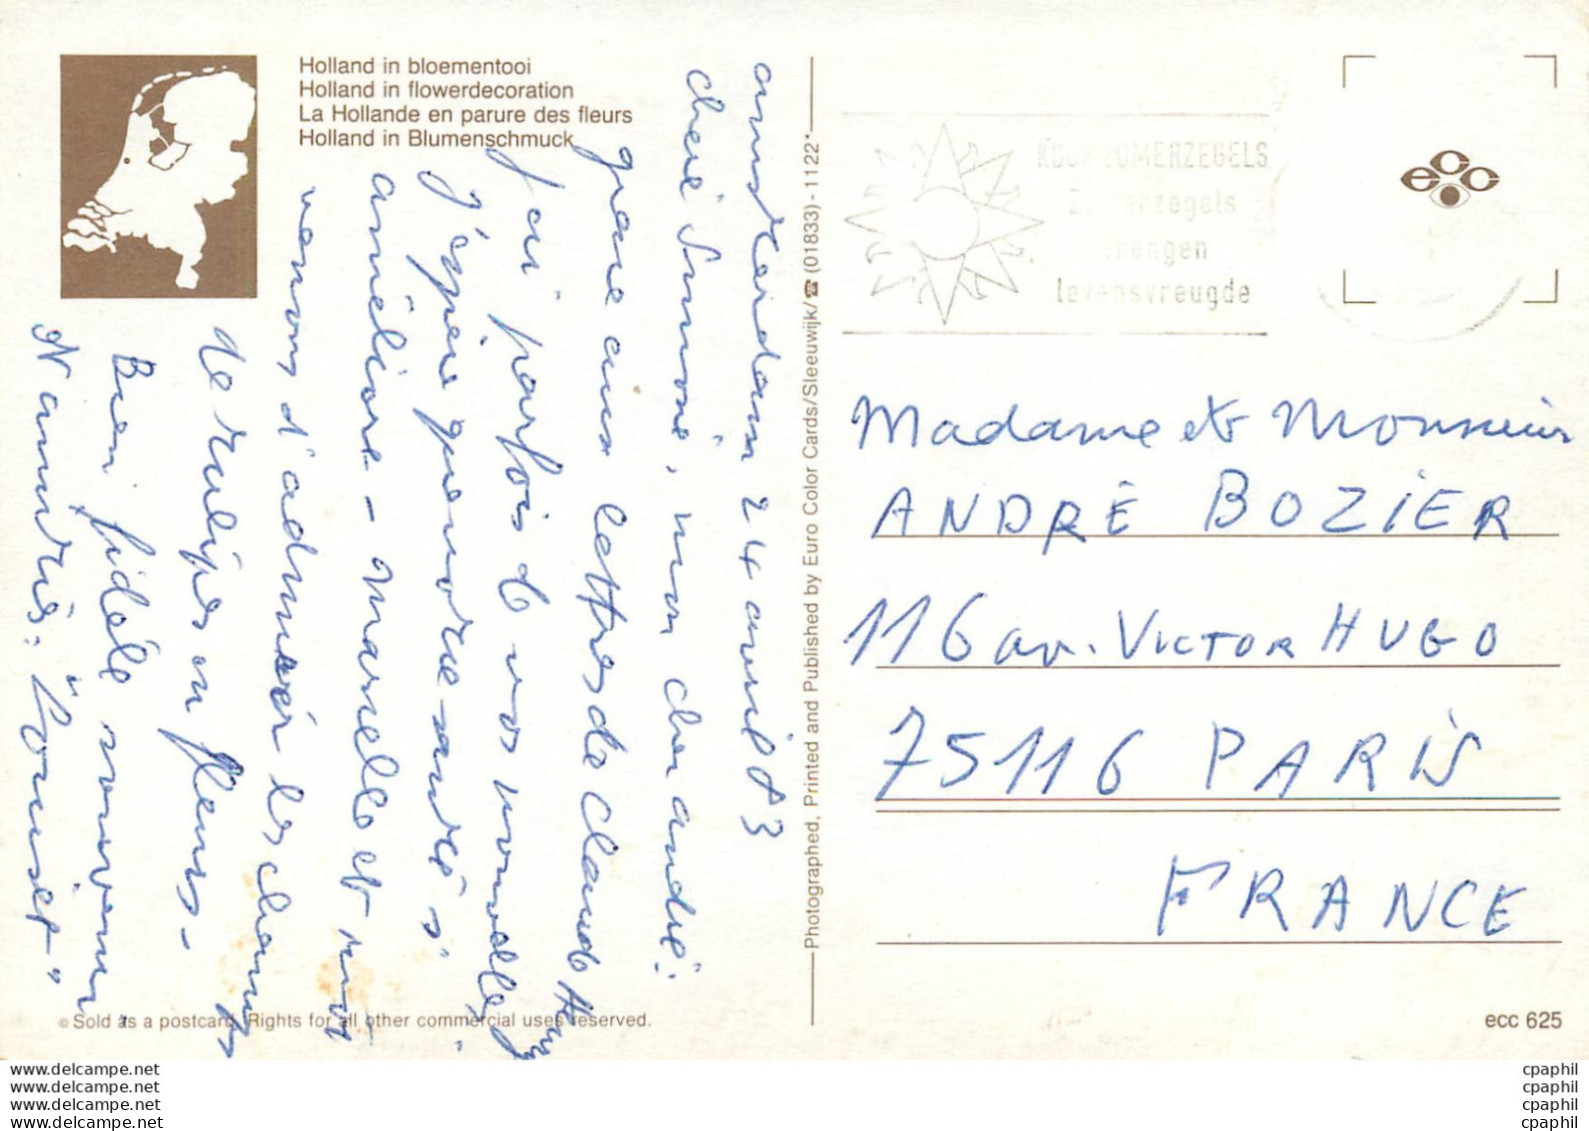 Holland in bloementooi
Holland in flowerdecoration
La Hollande en parure des fleurs
Holland in Blumenschmuck
amsterdam 24 avril 83
chère Simone, mon cher andré.
grace aux lettres de Claude
j'ai parfois de vos nouvelles
j'espère que notre andré s'
améliore - Marcelle et moi
venons d'admirer les champs
de tulipes en fleurs -
Bien fidèle souvenir
"Louiset"
Photographed, Printed and Published by Euro Color Cards/Sleeuwijk/☎ (01833) - 1122*
KOOP ZOMERZEGELS
Zomerzegels
brengen
levensvreugde
ecco
Madame et Monsieur
ANDRÉ BOZIER
116 av. VICTOR HUGO
75116 PARIS
FRANCE
© Sold as a postcard. Rights for all other commercial uses reserved.
ecc 625
www.delcampe.net
www.delcampe.net
www.delcampe.net
www.delcampe.net
cpaphil
cpaphil
cpaphil
cpaphil